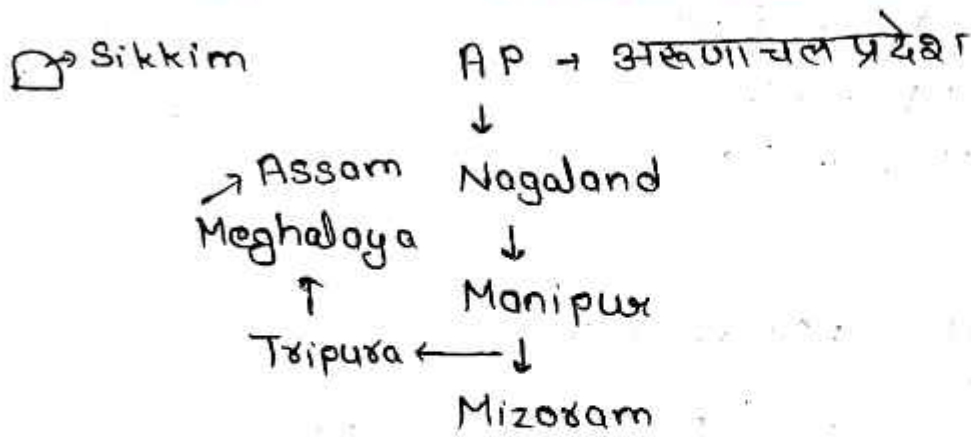 → Sikkim AP → अरूणाचल प्रदेश
↓
↗ Assam Nagaland
Meghalaya ↓
↑ Manipur
Tripura ← ↓
Mizoram